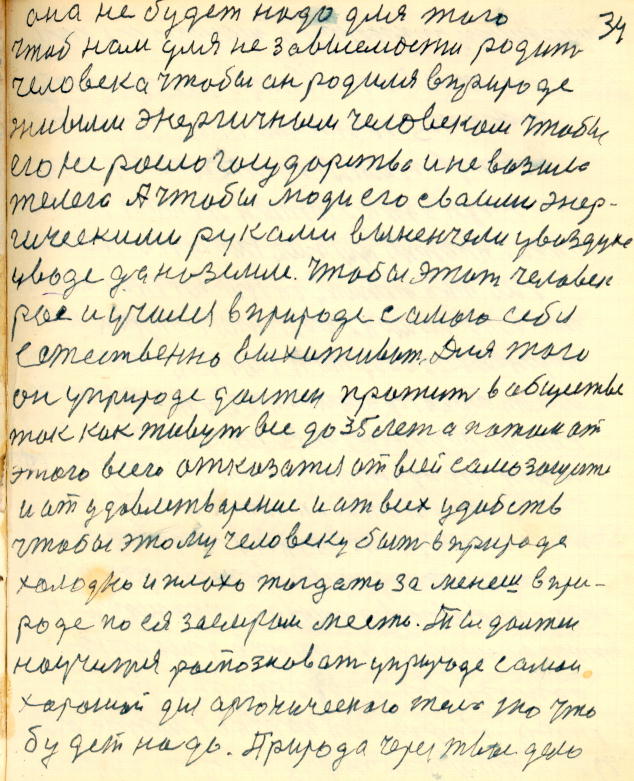 34
она не будет надо для того
чтоб нам для не зависемости родит
человека чтобы он родился в природе
живым энергичным человеком чтобы
его не росло государство и не возила
телега А чтобы люди его своими энер-
гическими руками выненчели у воздухе
у воде да на земле. Чтобы этот человек
рос и учился в природе самого себя
естественно выхаживат. Для того
он у природе должен прожит в обществе
так как живут все до 35 лет а потом от
этого всего отказатся от всей само защите
и от удовлетварение и от всех удобств
чтобы этому человеку быт в природе
холодно и плохо тогдато за менеш в при-
роде по ся место. Ты должен
научится распозноват у природе самои
хороший для аргонического тела то что
будет надо. Природа через твое дело